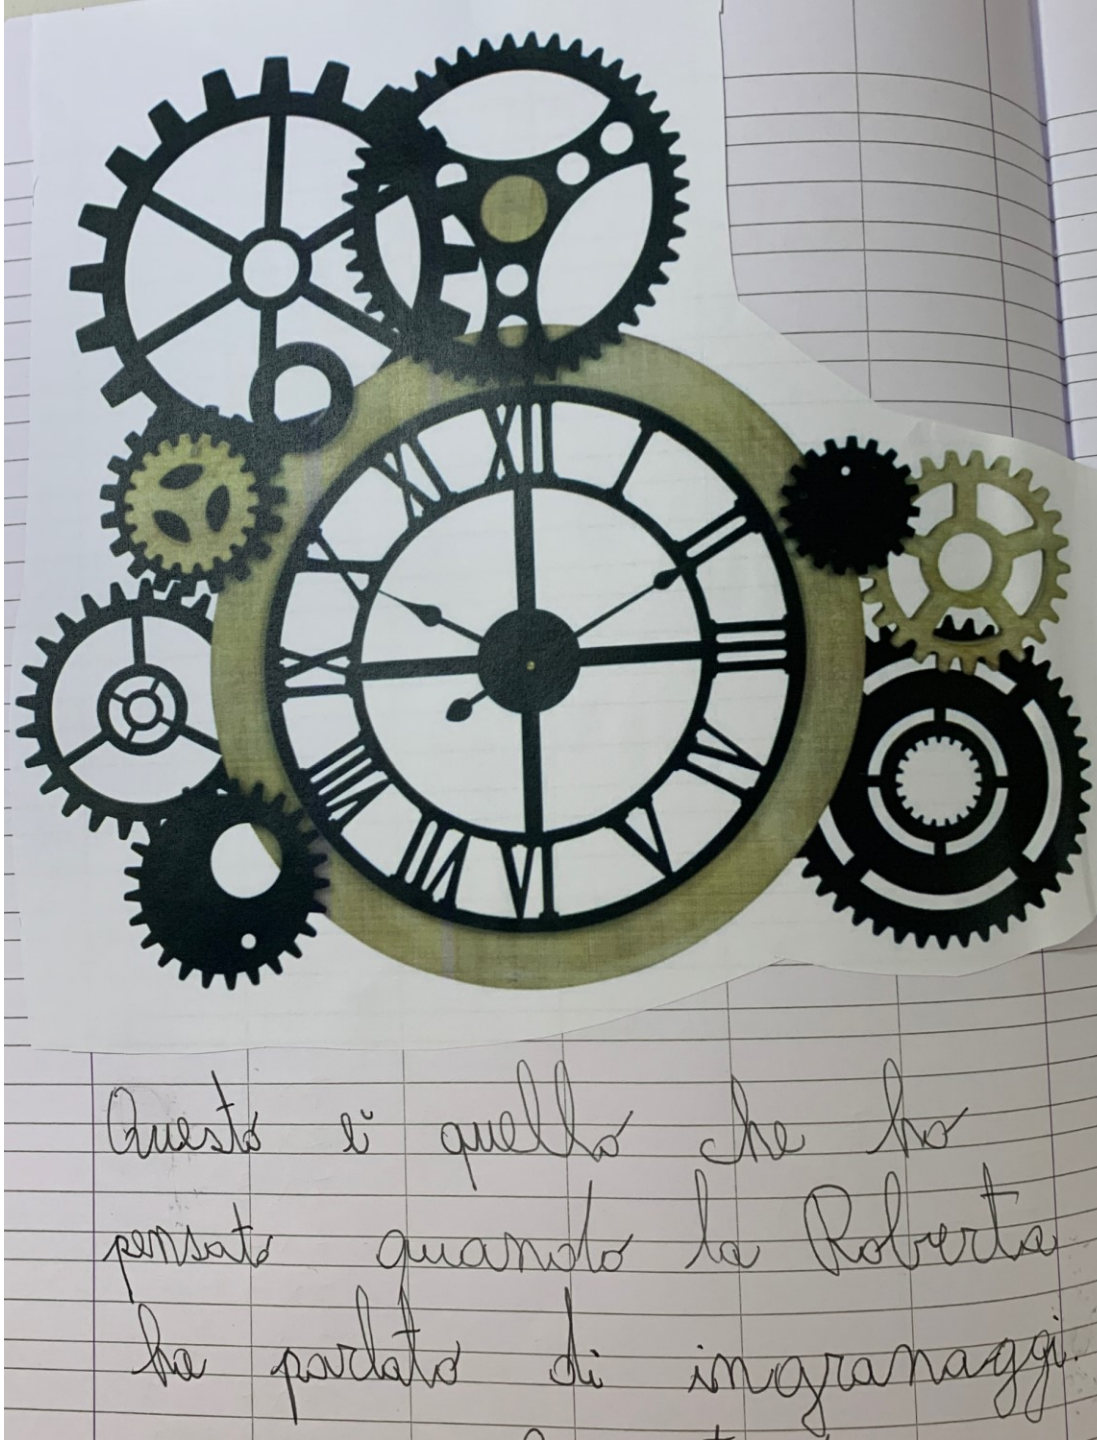 XII
I
II
III
IV
V
VI
VII
VIII
IX
X
XI
Questo è quello che ho
pensato quando la Roberta
ha parlato di ingranaggi.